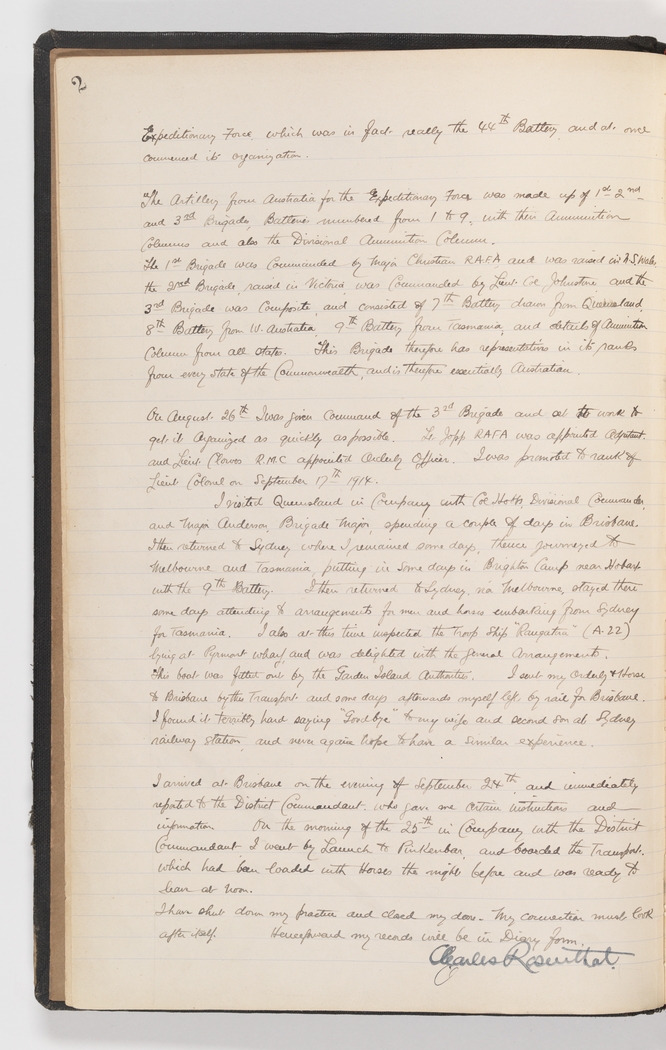 2
Expeditionary Force which was in fact really the 44th Battery and at once
commenced its organization.
"The Artillery from Australia for the Expeditionary Force was made up of 1st 2nd
and 3rd Brigade, Batteries numbered from 1 to 9, with their Ammunition
Columns and also the Divisional Ammunition Column.
The 1st Brigade was Commanded by Major Christian RAFA and was raised in N.S.Wales
the 2nd Brigade, raised in Victoria was Commanded by Lieut Col Johnstone, and the
3rd Brigade was Composite, and consisted of 7th Battery drawn from Queensland,
8th Battery from W. Australia 9th Battery from Tasmania, and details of Ammunition
Column from all States. This Brigade therefore has representatives in its ranks
from every State of the Commonwealth, and is therefore essentially Australian.
On August 26th I was given Command of the 3rd Brigade and set to work to
get it organized as quickly as possible. Lt Jopp RAFA was appointed Adjutant.
and Lieut Clowes R.M.C appointed Orderly Officer. I was promoted to rank of
Lieut Colonel on September 17th 1914.
I visited Queensland in Company with Col Hobbs, Divisional Commander,
and Major Anderson, Brigade Major, spending a couple of days in Brisbane.
I then returned to Sydney where I remained some days, thence journeyed to
Melbourne and Tasmania, putting in some days in Brighton Camp near Hobart
with the 9th Battery. I then returned to Sydney, via Melbourne, stayed there
some days attending to arrangements for men and horses embarking from Sydney
for Tasmania. I also at this time inspected the Troop Ship "Rangatira" (A.22)
lying at Pyrmont wharf, and was delighted with the general arrangements.
This boat was fitted out by the Garden Island Authorities. I sent my Orderly & Horse
to Brisbane by the Transport and some days afterwards myself left by rail for Brisbane.
I found it terribly hard saying "Goodbye" to my wife and second son at Sydney
railway station, and never again hope to have a similar experience.
I arrived at Brisbane on the evening of September 24th and immediately
reported to the District Commandant who gave me certain instructions and
information On the morning of the 25th in Company with the District
Commandant I went by Launch to Pinkenbar, and boarded the Transport.
which had been loaded with Horses the night before and was ready to
leave at noon.
I have shut down my practice and closed my doors - My connection must look
after itself. Henceforward my records will be in Diary form.
Charles Rosenthal.